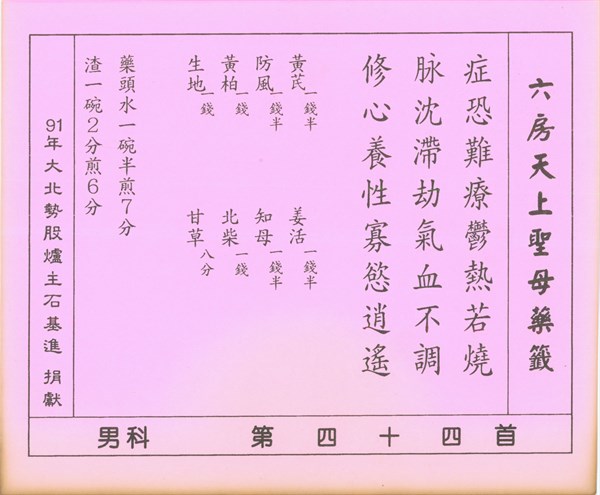 六房天上聖母藥籤
症恐難療鬱熱若燒
脉沈滯劫氣血不調
修心養性寡慾逍遙
黃芪一錢半 姜活一錢半
防風一錢半 知母一錢半
黃柏一錢 北柴一錢
生地一錢 甘草八分
藥頭水一碗半煎7分
渣一碗2分煎6分
91年大北勢股爐主石基進 捐獻
男科 第四十四首